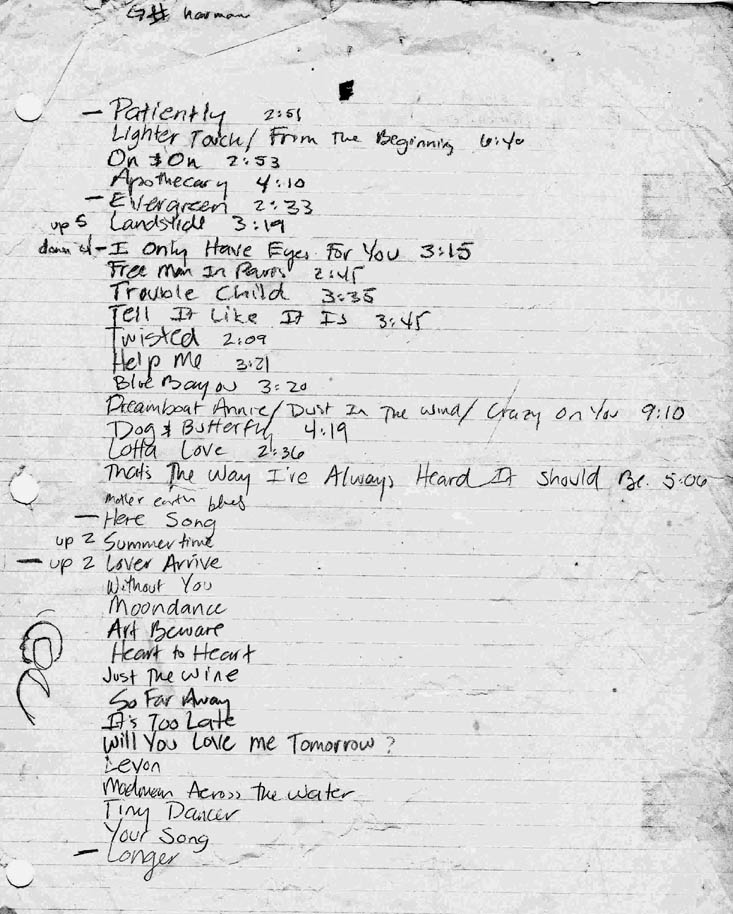 — Patiently 2:51
Lighter Touch/ From The Beginning 6:40
On & On 2:53
Apothecary 4:10
— Evergreen 2:33
up 5 Landslide 3:19
down 4 — I Only Have Eyes For You 3:15
Free Man In Paris 2:45
Trouble Child 3:35
Tell It Like It Is 3:45
Twisted 2:09
Help Me 3:21
Blue Bayou 3:20
Dreamboat Annie/ Dust In The Wind/ Crazy On You 9:10
Dog & Butterfly 4:19
Lotta Love 2:36
Thats The Way I've Always Heard It Should Be. 5:06
mother earth blues
— Here Song
up 2 Summertime
— up 2 Lover Arrive
Without You
Moondance
Art Beware
Heart to Heart
Just The Wine
So Far Away
It's Too Late
Will You Love Me Tomorrow?
Levon
Madman Across the Water
Tiny Dancer
Your Song
— Longer